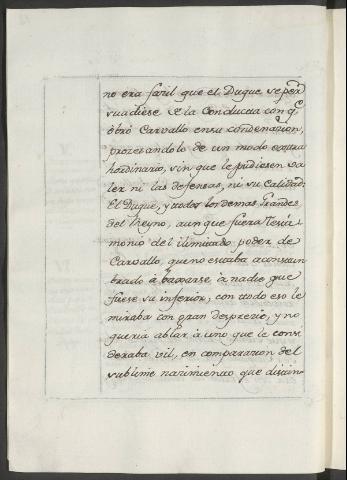 no era facil que el Duque se per
suadiese de la Conducta con q.
obró Carvallo en su condenacion,
procesandolo de un modo extra
hordinario, sin que le pudiesen va
ler ni las defensas, ni su Calidad.
El Duque, y todos los demas Grandes
del Reyno, aunque fuera Testi
monio del ilimitado poder de
Carvallo, que no estaba acostum
brado á baxarse á nadie que
fuese su inferior, con todo eso le
miraba con gran desprecio, y no
queria ablar á uno que le consi
deraba vil, en comparacion del
sublime nacimiento que distin